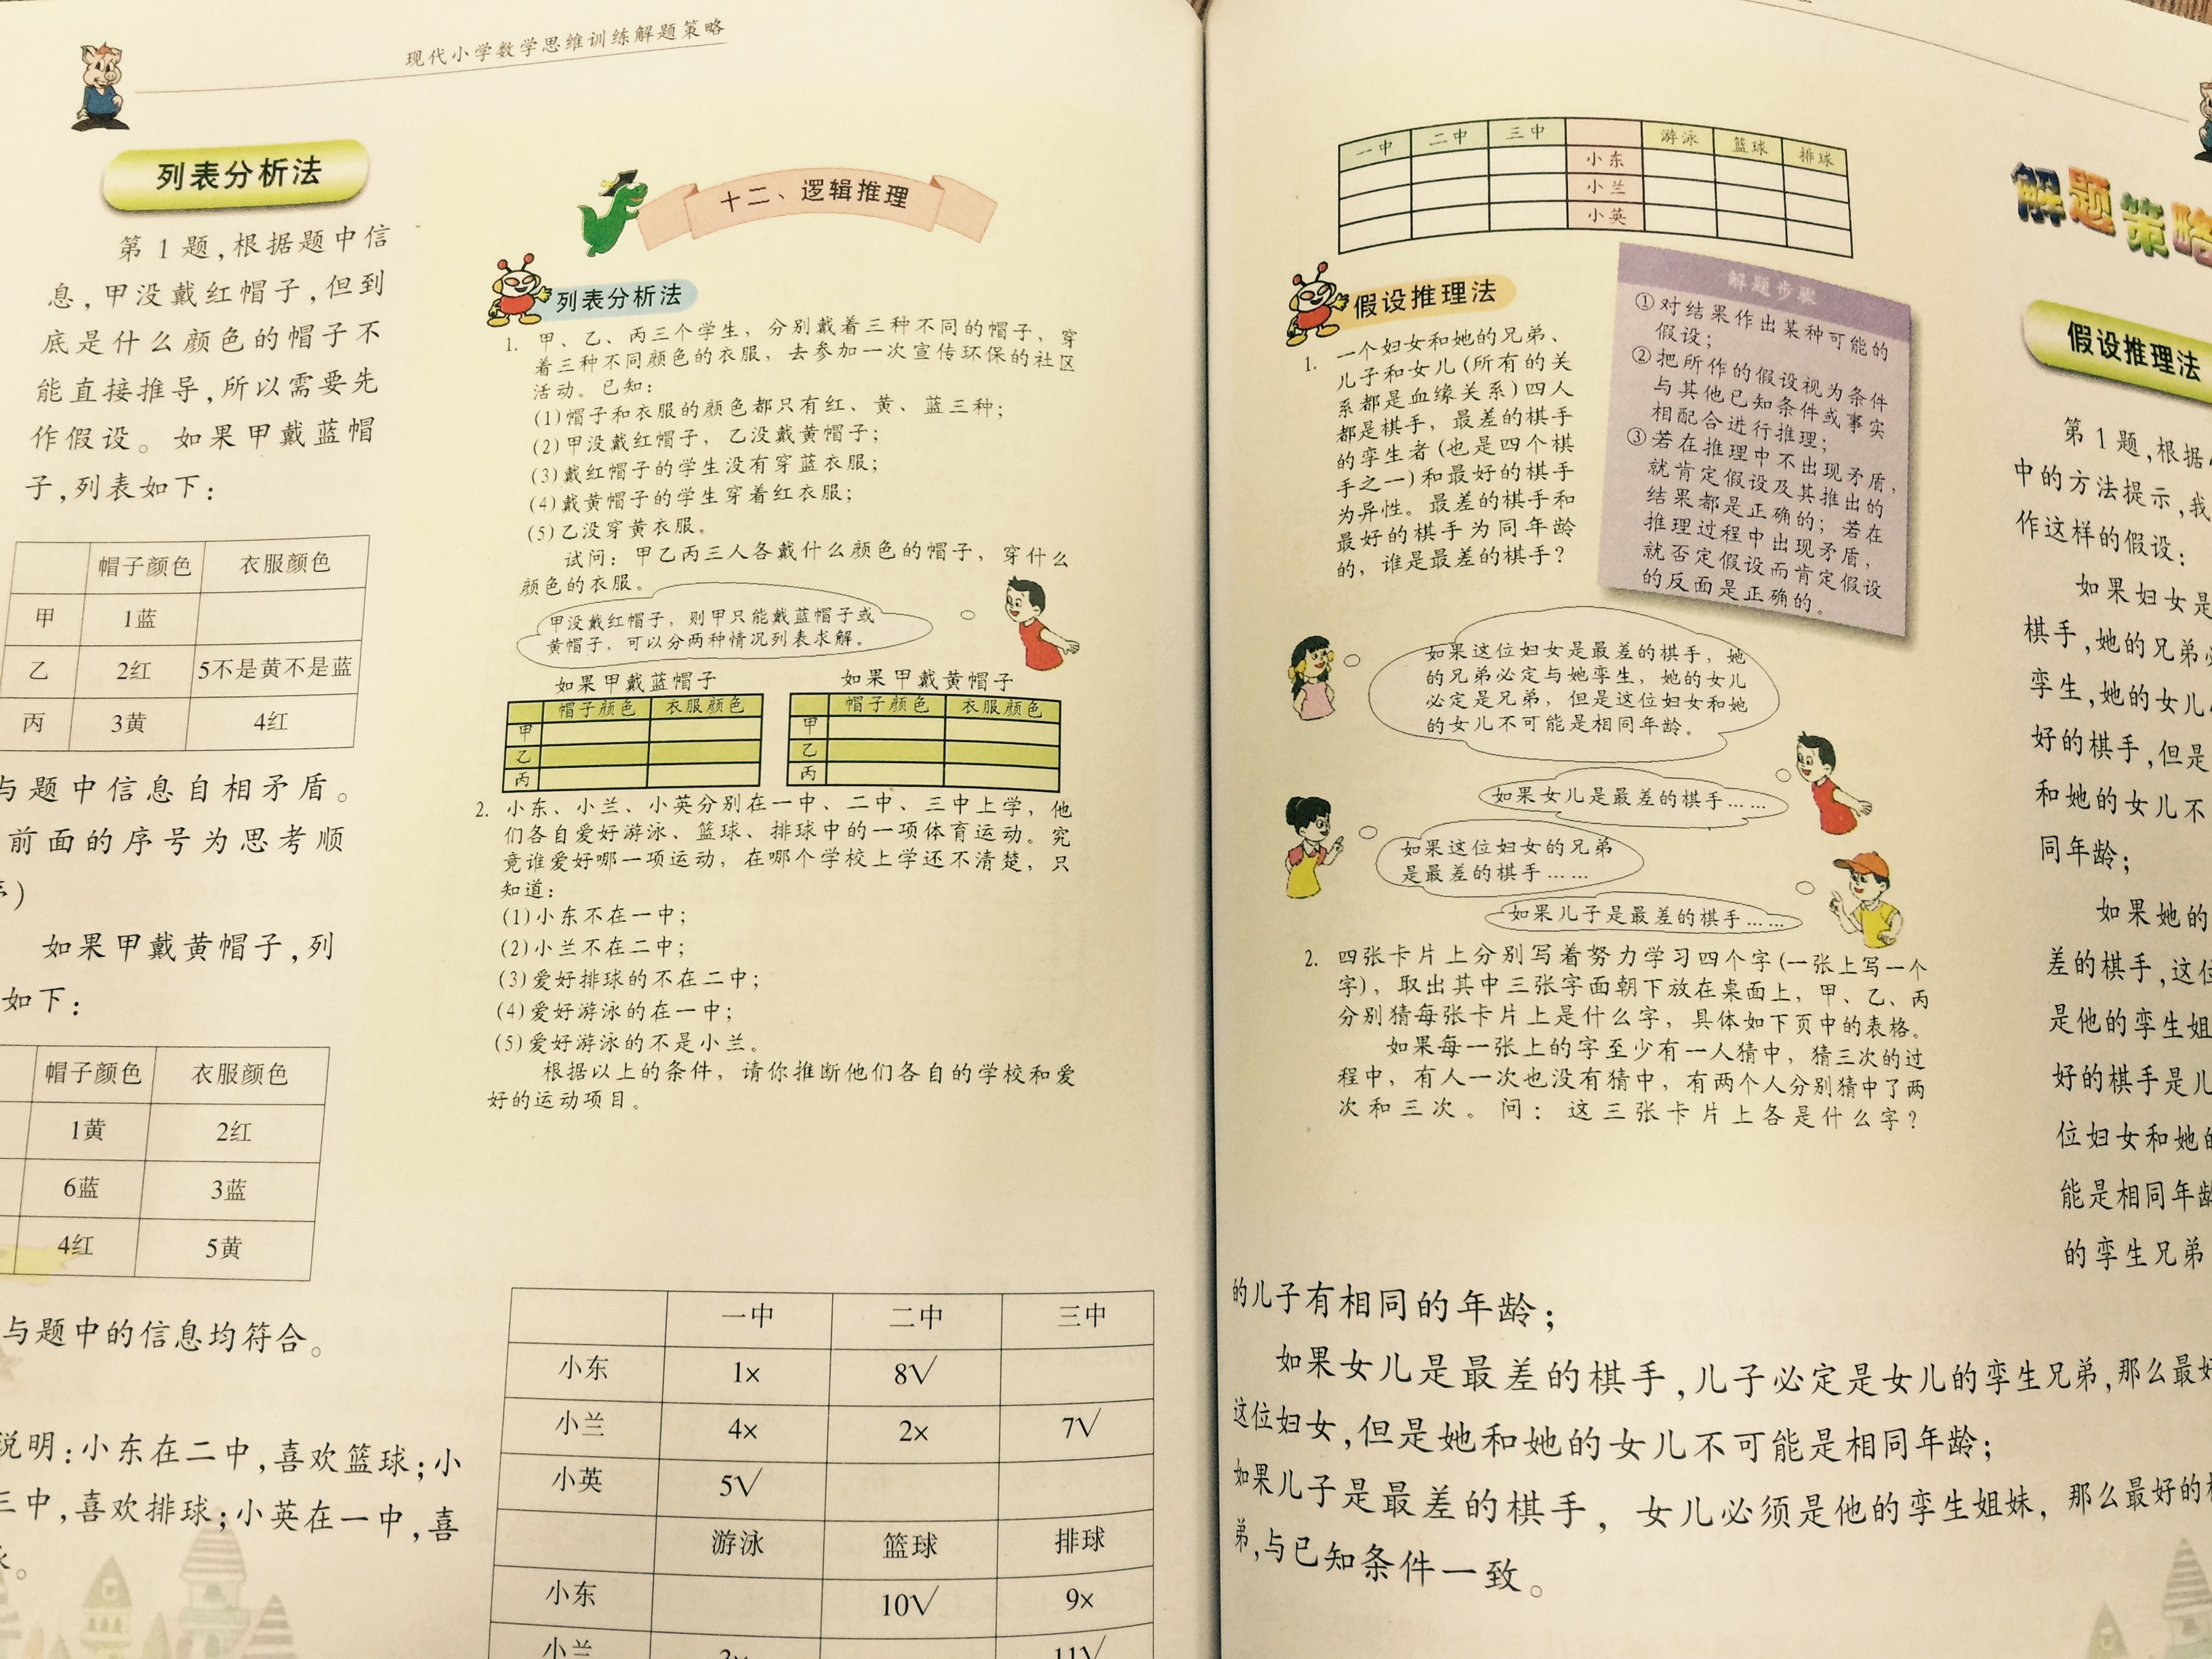 现代小学数学思维训练解题策略
列表分析法
第1题,根据题中信
息,甲没戴红帽子,但到
底是什么颜色的帽子不
能直接推导,所以需要先
作假设。如果甲戴蓝帽
子,列表如下:
帽子颜色 衣服颜色
甲 1蓝
乙 2红 5不是黄不是蓝
丙 3黄 4红
与题中信息自相矛盾。
前面的序号为思考顺
如果甲戴黄帽子,列
如下:
帽子颜色 衣服颜色
1黄 2红
6蓝 3蓝
4红 5黄
与题中的信息均符合。
说明:小东在二中,喜欢篮球;小
三中,喜欢排球;小英在一中,喜
十二、逻辑推理
列表分析法
1. 甲、乙、丙三个学生,分别戴着三种不同的帽子,穿
着三种不同颜色的衣服,去参加一次宣传环保的社区
活动。已知:
(1)帽子和衣服的颜色都只有红、黄、蓝三种;
(2)甲没戴红帽子,乙没戴黄帽子;
(3)戴红帽子的学生没有穿蓝衣服;
(4)戴黄帽子的学生穿着红衣服;
(5)乙没穿黄衣服。
试问:甲乙丙三人各戴什么颜色的帽子,穿什么
颜色的衣服。
甲没戴红帽子,则甲只能戴蓝帽子或
黄帽子,可以分两种情况列表求解。
如果甲戴蓝帽子 如果甲戴黄帽子
帽子颜色 衣服颜色 帽子颜色 衣服颜色
甲 甲
乙 乙
丙 丙
2. 小东、小兰、小英分别在一中、二中、三中上学,他
们各自爱好游泳、篮球、排球中的一项体育运动。究
竟谁爱好哪一项运动,在哪个学校上学还不清楚,只
知道:
(1)小东不在一中;
(2)小兰不在二中;
(3)爱好排球的不在二中;
(4)爱好游泳的在一中;
(5)爱好游泳的不是小兰。
根据以上的条件,请你推断他们各自的学校和爱
好的运动项目。
一中 二中 三中
小东 1× 8√
小兰 4× 2× 7√
小英 5√
游泳 篮球 排球
小东 10√ 9×
小兰 3× 11√
一中 二中 三中 游泳 篮球 排球
小东
小兰
小英
假设推理法
1. 一个妇女和她的兄弟、
儿子和女儿(所有的关
系都是血缘关系)四人
都是棋手,最差的棋手
的孪生者(也是四个棋
手之一)和最好的棋手
为异性。最差的棋手和
最好的棋手为同年龄
的,谁是最差的棋手?
解题步骤
①对结果作出某种可能的
假设;
②把所作的假设视为条件
与其他已知条件或事实
相配合进行推理;
③若在推理中不出现矛盾,
就肯定假设及其推出的
结果都是正确的;若在
推理过程中出现矛盾,
就否定假设而肯定假设
的反面是正确的。
如果这位妇女是最差的棋手,她
的兄弟必定与她孪生,她的女儿
必定是兄弟,但是这位妇女和她
的女儿不可能是相同年龄。
如果女儿是最差的棋手……
如果这位妇女的兄弟
是最差的棋手……
如果儿子是最差的棋手……
2. 四张卡片上分别写着努力学习四个字(一张上写一个
字),取出其中三张字面朝下放在桌面上,甲、乙、丙
分别猜每张卡片上是什么字,具体如下页中的表格。
如果每一张上的字至少有一人猜中,猜三次的过
程中,有人一次也没有猜中,有两个人分别猜中了两
次和三次。问:这三张卡片上各是什么字?
解题策略
假设推理法
第1题,根据
中的方法提示,我
作这样的假设:
如果妇女是
棋手,她的兄弟必
孪生,她的女儿
好的棋手,但是
和她的女儿不
同年龄;
如果她的
差的棋手,这位
是他的孪生姐
好的棋手是儿
位妇女和她的
能是相同年龄
的孪生兄弟
的儿子有相同的年龄;
如果女儿是最差的棋手,儿子必定是女儿的孪生兄弟,那么最好
这位妇女,但是她和她的女儿不可能是相同年龄;
如果儿子是最差的棋手,女儿必须是他的孪生姐妹,那么最好的棋
弟,与已知条件一致。